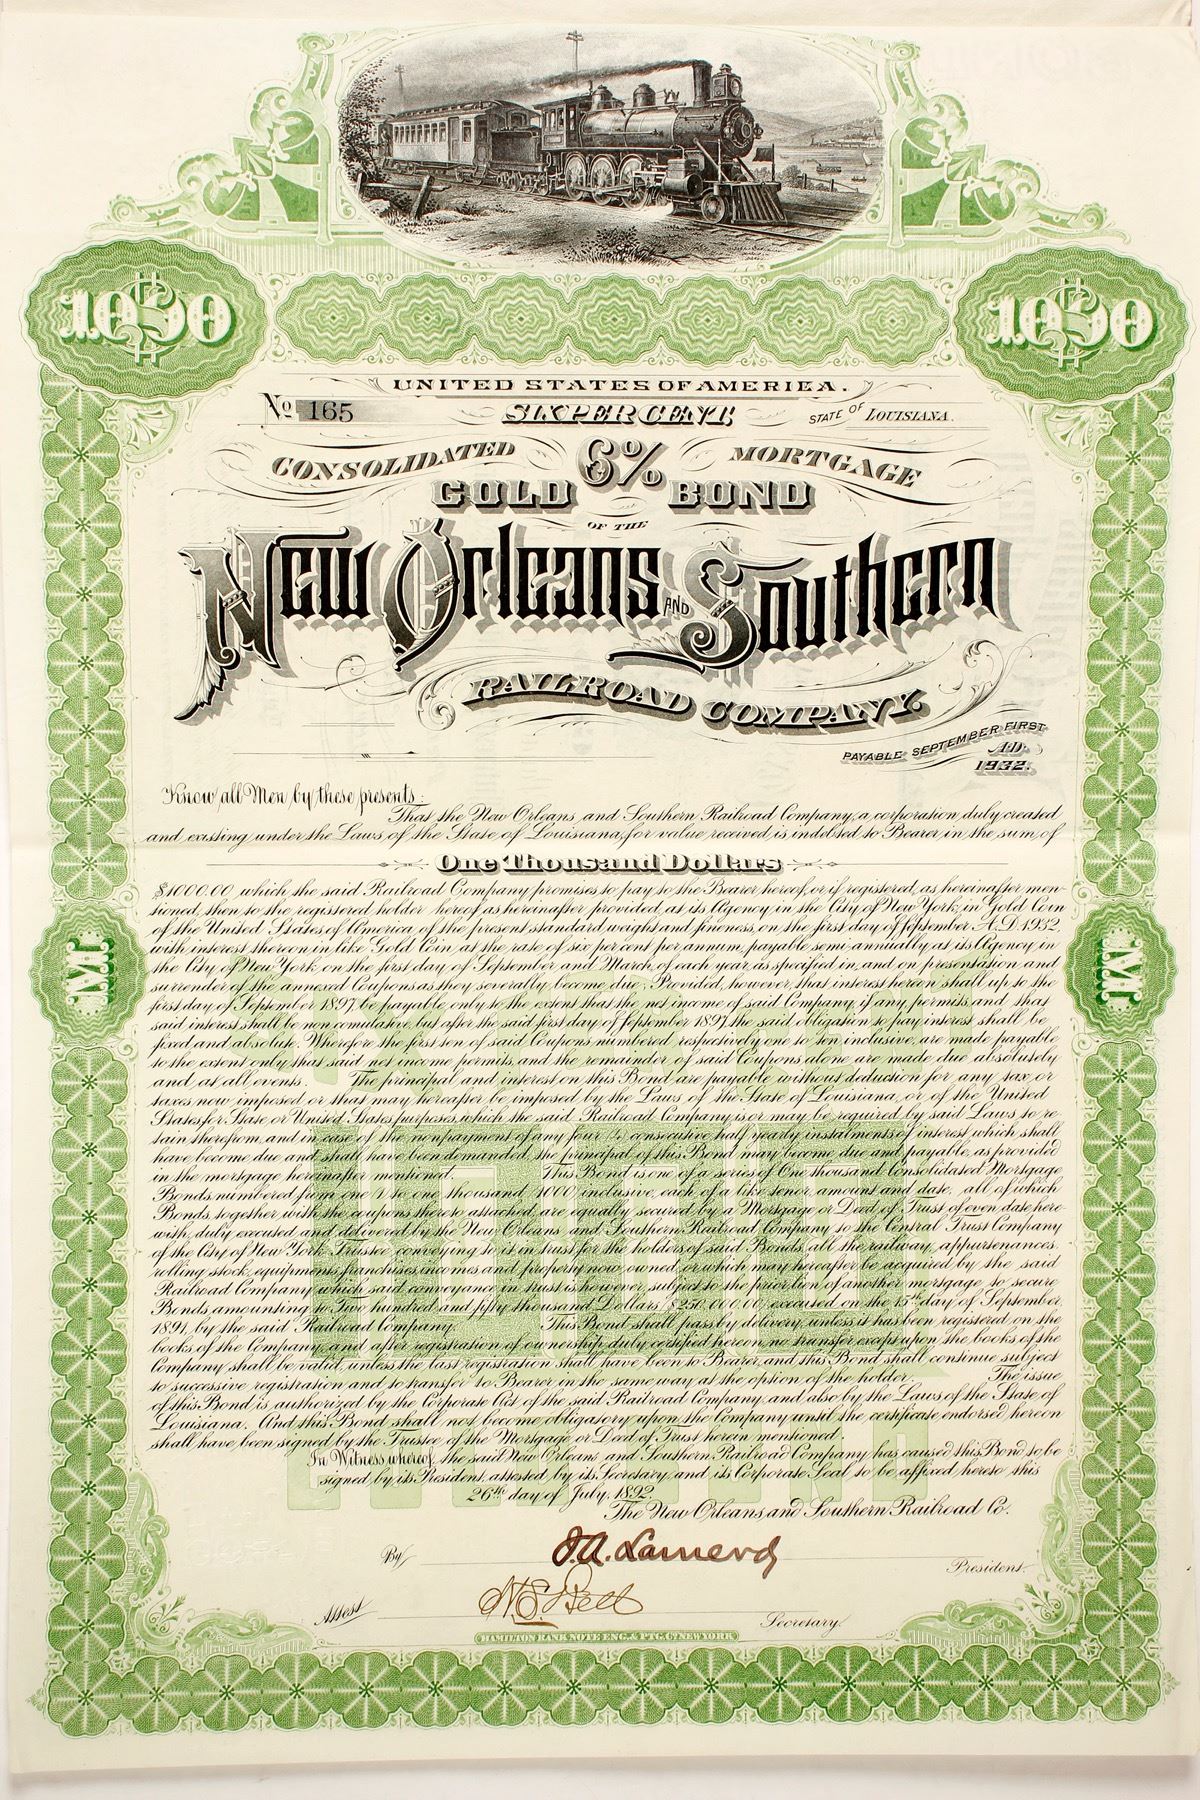 1000 $
1000 $
UNITED STATES OF AMERICA.
No 165
SIX PER CENT,
STATE OF LOUISIANA.
CONSOLIDATED 6% MORTGAGE
GOLD BOND
OF THE
New Orleans AND Southern
RAILROAD COMPANY.
PAYABLE SEPTEMBER FIRST
A.D.
1932.
Know all Men by these presents:
That the New Orleans and Southern Railroad Company, a corporation duly created
and existing under the Laws of the State of Louisiana, for value received is indebted to Bearer in the sum, of
One Thousand Dollars
$1000.00, which the said Railroad Company promises to pay to the Bearer hereof, or if registered, as hereinafter men-
tioned, then to the registered holder hereof as hereinafter provided, at its Agency in the City of New York, in Gold Coin
of the United States of America of the present standard weight and fineness, on the first day of September A.D. 1932,
with interest thereon in like Gold Coin at the rate of six per cent per annum, payable semi-annually at its Agency in
the City of New York on the first day of September and March, of each year, as specified in, and on presentation and
surrender of the annexed Coupons as they severally become due; Provided, however, that interest hereon shall up to the
first day of September 1897, be payable only to the extent that the net income of said Company, if any, permits, and that
said interest shall be non cumulative, but after the said first day of September 1897, the said obligation to pay interest shall be
fixed and absolute. Wherefore the first ten of said Coupons numbered respectively one to ten inclusive, are made payable
to the extent only that said net income permits, and the remainder of said Coupons alone are made due absolutely
and at all events. The principal and interest on this Bond are payable without deduction for any tax or
taxes now imposed or that may hereafter be imposed by the Laws of the State of Louisiana, or of the United
States for State or United States purposes, which the said Railroad Company is or may be required by said Laws to re-
tain therefrom, and in case of the nonpayment of any four (4) consecutive half yearly instalments of interest which shall
have become due and shall have been demanded, the principal of this Bond may become due and payable, as provided
in the mortgage hereinafter mentioned. This Bond is one of a series of One thousand Consolidated Mortgage
Bonds, numbered from one (1) to one thousand (1000) inclusive, each of a like tenor, amount and date, all of which
Bonds, together with the coupons thereto attached, are equally secured by a Mortgage or Deed of Trust of even date here-
with, duly executed and delivered by the New Orleans and Southern Railroad Company to the Central Trust Company
of the City of New York, Trustee, conveying to it in trust for the holders of said Bonds, all the railway, appurtenances,
rolling stock, equipments, franchises, incomes and property now owned, or which may hereafter be acquired by the said
Railroad Company, which said conveyance in trust is however, subject to the prior lien of another mortgage, to secure
Bonds amounting to Two hundred and fifty thousand Dollars ($250,000.00) executed on the 15th day of September,
1891, by the said Railroad Company. This Bond shall pass by delivery, unless it has been registered on the
books of the Company, and after registration of ownership, duly certified hereon, no transfer except upon the books of the
Company shall be valid, unless the last registration shall have been to Bearer, and this Bond shall continue subject
to successive registration and to transfer to Bearer in the same way at the option of the holder. The issue
of this Bond is authorized by the Corporate Act of the said Railroad Company, and also by the Laws of the State of
Louisiana. And this Bond shall not become obligatory upon the Company until the certificate endorsed hereon
shall have been signed by the Trustee of the Mortgage or Deed of Trust herein mentioned.
In Witness whereof, the said New Orleans and Southern Railroad Company has caused this Bond to be
signed by its President, attested by its Secretary, and its Corporate Seal to be affixed hereto this
26th day of July, 1892.
The New Orleans and Southern Railroad Co.
By
President.
Attest
Secretary.
HAMILTON BANK NOTE ENG. & PTG. CO. NEW YORK
M
M